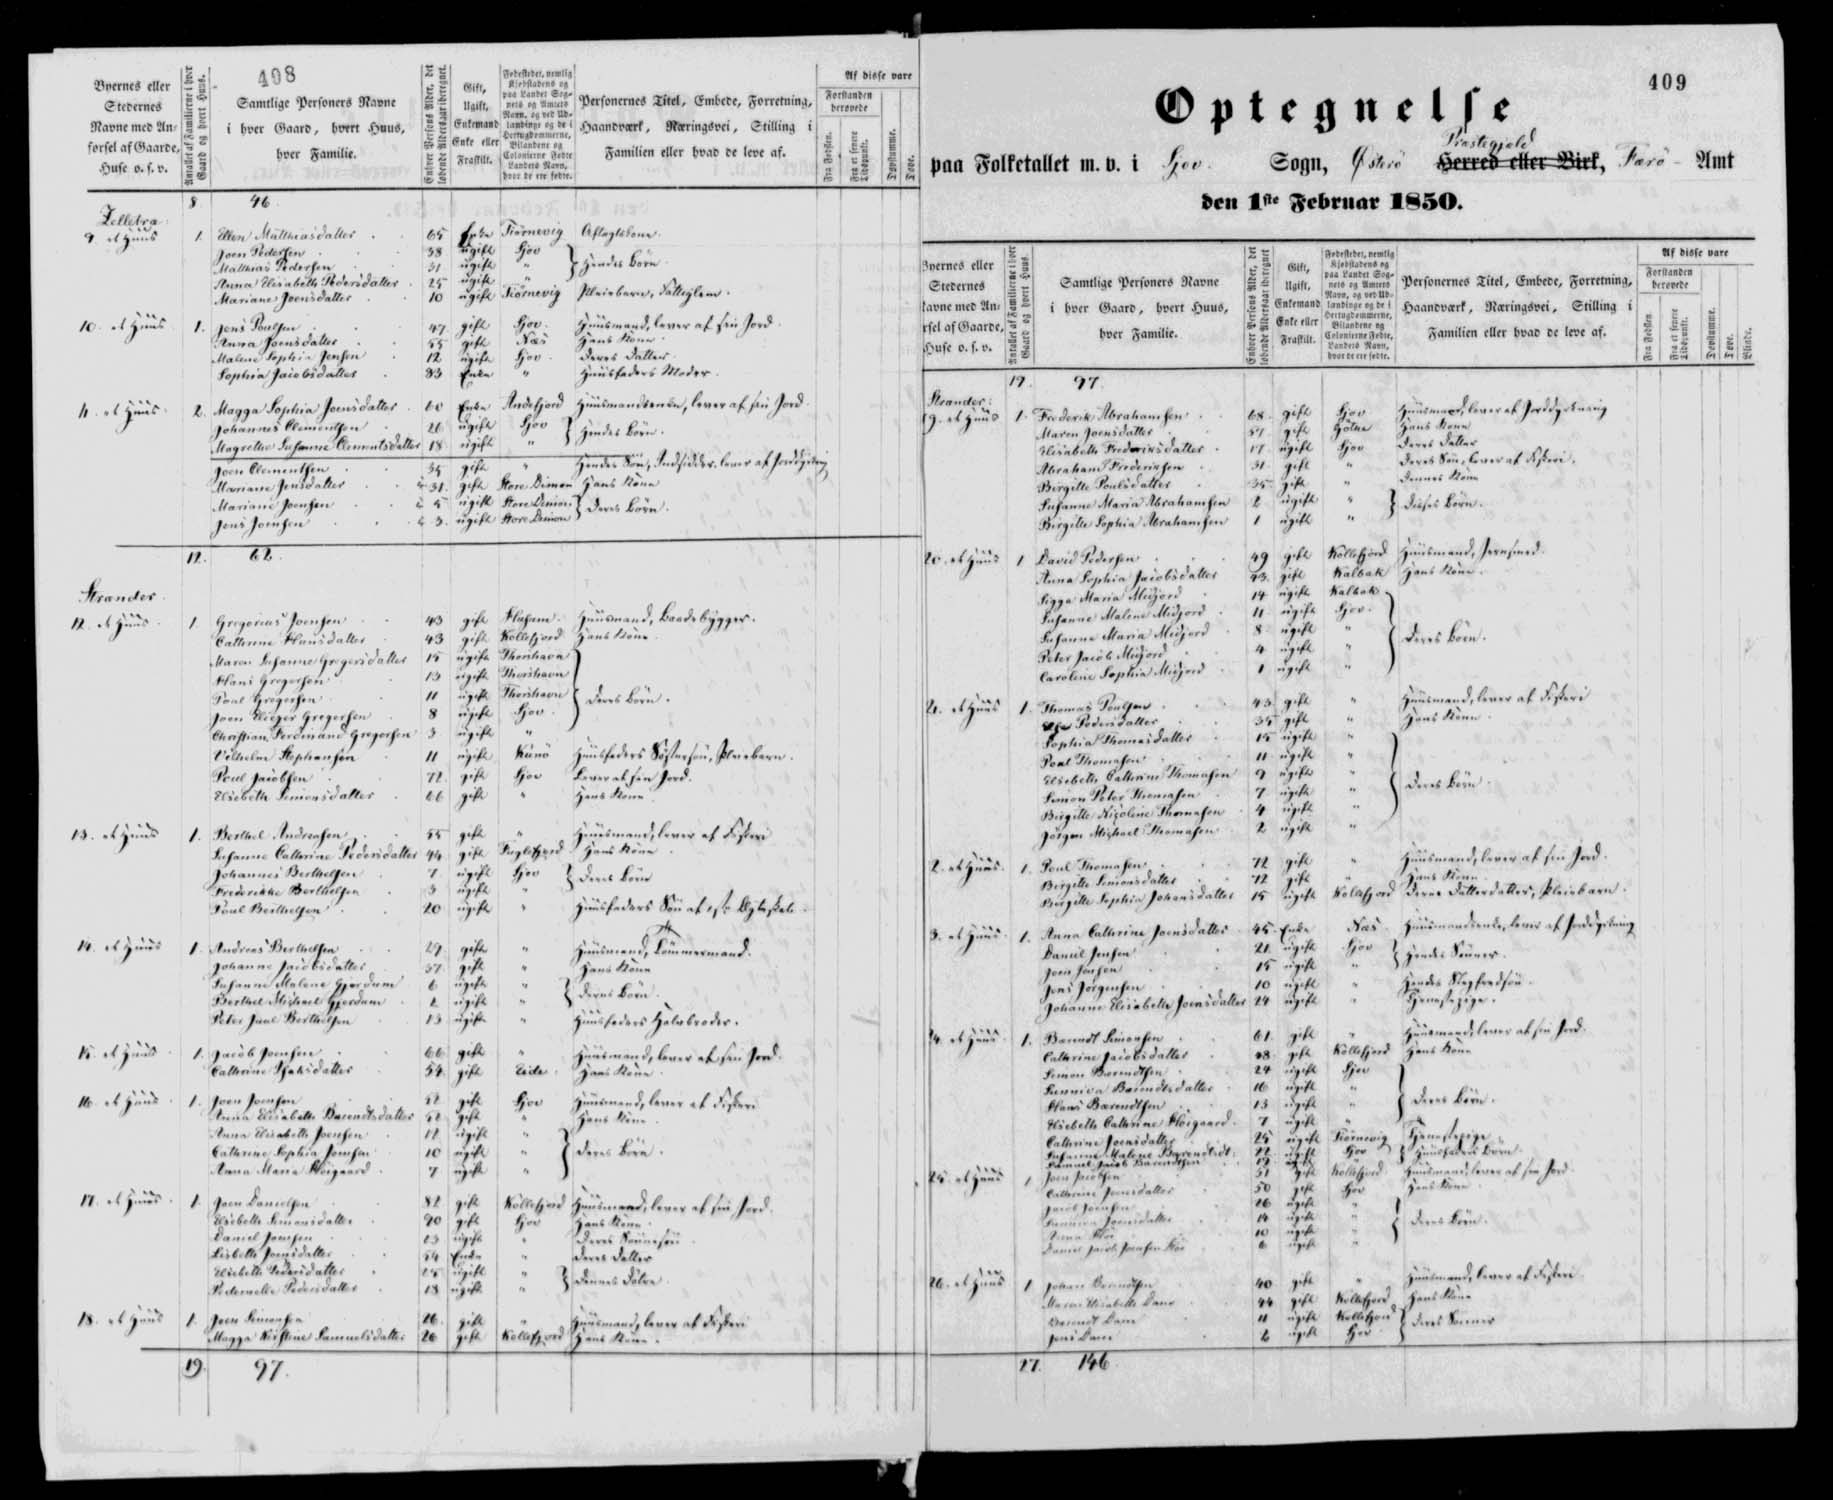 408
Byernes eller Stedernes Navne med Anførsel af Gaarde, Huse o. s. v.
Antallet af Familierne i hver Gaard og hvert Huus.
Samtlige Personers Navne i hver Gaard, hvert Huus, hver Familie.
Enhver Persons Alder, det løbende Aldersaar iberegnet.
Gift, Ugift, Enkemand Enke eller Fraskilt.
Fødestedet, nemlig Kjøbstadens og paa Landet Sognets og Amtets Navn, og ved Udlændinge og de i Hertugdommerne, Bilandene og Colonierne Fødte Landets Navn, hvor de ere fødte.
Personernes Titel, Embede, Forretning, Haandværk, Næringsvei, Stilling i Familien eller hvad de leve af.
Af disse vare
Forstanden berøvede
Fra Fødslen.
Fra et senere Tidspunkt.
Døvstumme.
Døve.
8. 46.
9. et Huus 1. Ellen Matthiasdatter 65 Enke Tiørnevig Aftægtskone.
Joen Pedersen 38 ugift Gjov } Hendes Börn.
Matthias Pedersen 31 ugift "
Anna Elisabeth Pedersdatter 25 ugift "
Mariane Joensdatter 10 ugift Tiørnevig Pleiebarn,
10. et Huus 1. Jens Poulsen 47 gift Gjov. Huusmand, lever af sin Jord.
Anna Joensdatter 55 gift Næs Hans Kone.
Malene Sophia Jensen 12 ugift Gjov. Deres Datter.
Sophia Jacobsdatter 83 Enke " Huusfaders Moder.
11. et Huus 2. Magga Sophia Joensdatter 60 Enke Andefjord Huusmandsenke, lever af sin Jord.
Johannes Clementsen 26 ugift Gjov } Hendes Börn.
Magrethe Susanne Clementsdatter 18 ugift "
Joen Clementsen 35 gift " Hendes Søn, Indsidder, lever af Jorddyrkning
Mariane Jensdatter 31. gift Store Dimon Hans Kone
Mariane Joensen 5 ugift Store Dimon } Deres Börn.
Jens Joensen 3. ugift Store Dimon
12. 62.
Strænder.
12. et Huus 1. Gregorius Joensen 43 gift Huusmand, Baadebygger.
Cathrine Hansdatter 43 gift Kollefjord Hans Kone.
Maren Susanne Gregersdatter 15 ugift Thorshavn } Deres Börn.
Hans Gregersen 13 ugift Thorshavn
Poul Gregersen 11 ugift Thorshavn
Joen Elieser Gregersen 8 ugift Gjov.
Christian Ferdinand Gregersen 3 ugift "
Vilhelm Stephansen 11 ugift Kunö Huusfaders Søstersøn, Pleiebarn.
Poul Jacobsen 72 gift Gjov Lever af sin Jord.
Elsebeth Simonsdatter 66 gift " Hans Kone.
13. et Huus 1. Berthel Andreasen 55 gift " Huusmand, lever af Fiskeri
Susanne Cathrine Pedersdatter 44 gift Fuglefjord Hans Kone.
Johannes Berthelsen 7 ugift Gjov } Deres Börn
Fredericke Berthelsen 3 ugift "
Poul Berthelsen 20 ugift " Huusfaders Søn af 1ste Ægteskab.
14. et Huus 1. Andreas Berthelsen 29 gift " Huusmand, Tömmermand.
Johanne Jacobsdatter 37 gift " Hans Kone
Susanne Malene Gjerdum 6 ugift " } Deres Börn.
Berthel Michael Gjerdum 2 ugift "
Peter Juul Berthelsen 13 ugift " Huusfaders Halvbroder.
15. et Huus 1. Jacob Joensen 66 gift " Huusmand, lever af sin Jord.
Cathrine Isaksdatter 54. gift Eide. Hans Kone.
16. et Huus 1. Joen Joensen 52 gift Gjov Huusmand, lever af Fiskeri
Anna Elisabeth Barendtsdatter 52 gift " Hans Kone.
Anna Elisabeth Joensen 12 ugift " } Deres Börn.
Cathrine Sophia Joensen 10 ugift "
Anna Maria Höigaard 7 ugift "
17. et Huus 1. Joen Danielsen 82 gift Kollefjord Huusmand, lever af sin Jord.
Elsebeth Simonsdatter 90 gift Gjov Hans Kone.
Daniel Joensen 23 ugift " Deres Sønnesøn.
Lisbeth Joensdatter 54 Enke " Deres Datter
Elsebeth Pedersdatter 25 ugift " } Dennes Døtre.
Pedernelle Pedersdatter 18 ugift "
18. et Huus 1. Joen Simonsen 26. gift " Huusmand, lever af Fiskeri
Magga Kirstine Samuelsdatter 26 gift Kollefjord Hans Kone.
19. 97.
409
Optegnelse
paa Folketallet m. v. i Gjov. Sogn, Österö Præstegjeld Herred eller Birk, Færö Amt
den 1ste Februar 1850.
Byernes eller Stedernes Navne med Anførsel af Gaarde, Huse o. s. v.
Antallet af Familierne i hver Gaard og hvert Huus.
Samtlige Personers Navne i hver Gaard, hvert Huus, hver Familie.
Enhver Persons Alder, det løbende Aldersaar iberegnet
Gift, Ugift, Enkemand Enke eller Fraskilt.
Fødestedet, nemlig Kjøbstadens og paa Landet Sognets og Amtets Navn, og ved Udlændinge og de i Hertugdommerne, Bilandene og Colonierne Fødte, Landets Navn, hvor de ere fødte.
Personernes Titel, Embede, Forretning, Haandværk, Næringsvei, Stilling i Familien eller hvad de leve af.
Af disse vare
Forstanden berøvede
Fra Fødslen.
Fra et senere Tidspunkt.
Døvstumme.
Døve.
Blinde.
19. 97.
Strænder:
19. et Huus 1. Frederik Abrahamsen 68. gift Gjov Huusmand, lever af Jorddyrkning
Maren Joensdatter 57 gift Göthe Hans Kone
Elisabeth Frederiksdatter 17 ugift Gjov Deres Datter
Abraham Frederiksen 31 gift " Deres Søn, lever af Fiskeri.
Birgitte Poulsdatter 35 gift " Dennes Kone
Susanne Maria Abrahamsen 2 ugift " } Disses Börn.
Birgitte Sophia Abrahamsen 1 ugift "
20. et Huus 1 David Pedersen 49 gift Kollefjord Huusmand, Jernsmed.
Anna Sophia Jacobsdatter 43. gift Kalbak Hans Kone.
Sigga Maria Midjord 14 ugift Kalbak } Deres Börn.
Susanne Malene Midjord 11 ugift Gjov.
Susanne Maria Midjord 8 ugift "
Peter Jacob Midjord 4 ugift "
Caroline Sophia Midjord 1 ugift "
21. et Huus 1. Thomas Poulsen 43 gift " Huusmand, lever af Fiskeri
Pedersdatter 35 gift " Hans Kone.
Sophia Thomasdatter 15 ugift " } Deres Börn.
Poul Thomasen 11 ugift "
Elsebeth Cathrine Thomasen 9 ugift "
Simon Peter Thomasen 7 ugift "
Birgitte Nicoline Thomasen 4 ugift "
Jørgen Michael Thomasen 2 ugift "
2. et Huus 1. Poul Thomasen 72 gift " Huusmand, lever af sin Jord.
Birgitte Simonsdatter 72 gift " Hans Kone
Birgitte Sophia Johansdatter 15 ugift Kollefjord Deres Datterdatter, Pleiebarn.
3. et Huus 1. Anna Cathrine Joensdatter 45 Enke Næs. Huusmandsenke, lever af Jorddyrkning
Daniel Jensen 21 ugift Gjov } Hendes Sønner.
Joen Jensen 15 ugift "
Jens Jørgensen 10 ugift " Hendes Stepfredsøn.
Johanne Elisabeth Joensdatter 24 ugift " Tjenestepige.
24. et Huus 1. Barendt Simonsen 61. gift " Huusmand, lever af sin Jord.
Cathrine Jacobsdatter 48. gift Kollefjord Hans Kone
Simon Barendtsen 24 ugift Gjov } Deres Börn.
Sunniva Barendtsdatter 16 ugift "
Hans Barendtsen 13 ugift "
Elsebeth Cathrine Höigaard. 7 ugift "
Cathrine Joensdatter 25 ugift Tiørnevig Tjenestepige
Susanne Malene Barendtsdt. 22 ugift Gjov } Huusfaders Börn.
Samuel Jacob Barendtsen 19 ugift
25. et Huus 1 Joen Jacobsen 51 gift Kollefjord Huusmand, lever af sin Jord
Cathrine Joensdatter 50 gift Gjov Hans Kone
Jacob Joensen 26 ugift " } Deres Börn.
Sunniva Joensdatter 14 ugift "
10 ugift "
Daniel Jacob Joensen 6 ugift "
26. et Huus 1 Johan Barendtsen 40 gift " Huusmand, lever af Fiskeri
Maria Elisabeth Dam 44 gift Kollefjord Hans Kone
Barendt Dam 11 ugift Kollefjord } Deres Sønner
Jens Dam 6 ugift Gjov
27. 146.